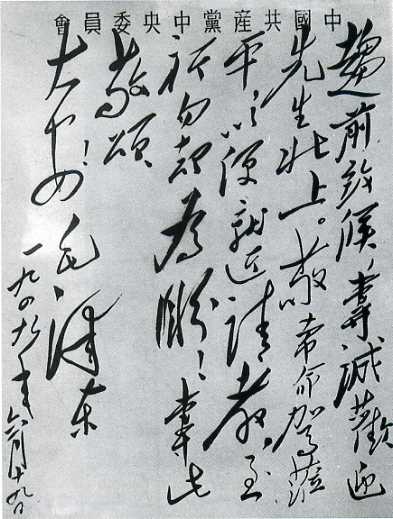 中國共産黨中央委員會
趨前致候，專誠歡迎
先生北上。敬希命駕蒞
平，以便就近請教，至
祈勿却為盼！專此
敬頌
大安！
毛澤东
一九四九年六月十九日